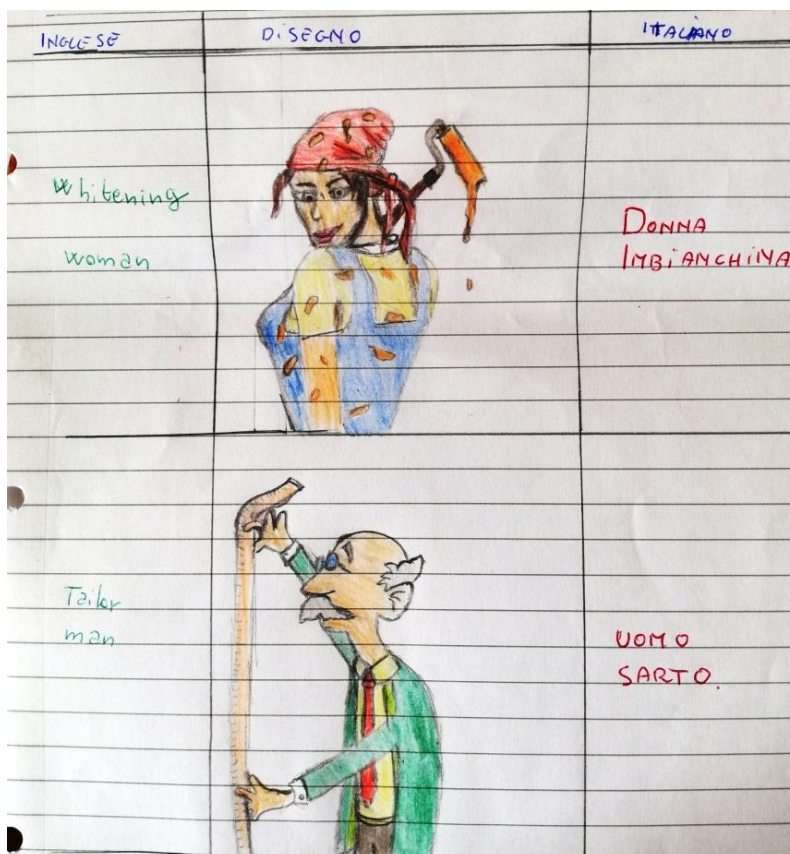 INGLESE
DISEGNO
ITALIANO
Whitening
woman
DONNA
IMBIANCHINA
Tailor
man
UOMO
SARTO.